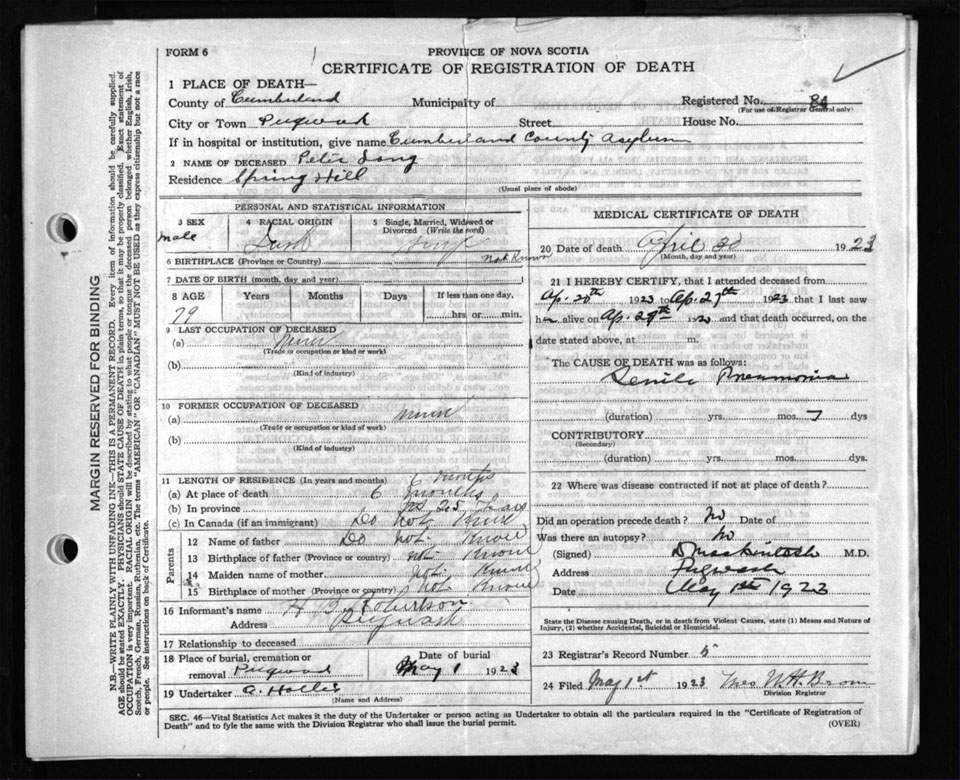 FORM 6
PROVINCE OF NOVA SCOTIA
CERTIFICATE OF REGISTRATION OF DEATH
1 PLACE OF DEATH—
County of Cumberland Municipality of Registered No. 84
(For use of Registrar General only)
City or Town Pugwash Street House No.
If in hospital or institution, give name Cumberland County Asylum
2 NAME OF DECEASED Peter
Residence Spring Hill
(Usual place of abode)
PERSONAL AND STATISTICAL INFORMATION
3 SEX
male
4 RACIAL ORIGIN
5 Single, Married, Widowed or Divorced (Write the word)
6 BIRTHPLACE (Province or Country) not Known
7 DATE OF BIRTH (month, day and year)
8 AGE Years Months Days If less than one day,
79 hrs. or min.
9 LAST OCCUPATION OF DECEASED
(a) Miner
(Trade or occupation or kind or work)
(b)
(Kind of industry)
10 FORMER OCCUPATION OF DECEASED
(a) Miner
(Trade or occupation or kind or work)
(b)
(Kind of industry)
11 LENGTH OF RESIDENCE (In years and months) 6 months
(a) At place of death 6 months
(b) In province 25 years
(c) In Canada (if an immigrant) Do not know
Parents
12 Name of father Do not know
13 Birthplace of father (Province or country) not Known
14 Maiden name of mother not Know
15 Birthplace of mother (Province or country) not Known
16 Informant's name H Robertson
Address Pugwash
17 Relationship to deceased
18 Place of burial, cremation or removal Pugwash
Date of burial
May 1 1923
19 Undertaker A. Hollis
(Name and Address)
MEDICAL CERTIFICATE OF DEATH
20 Date of death April 30 1923
(Month, day and year)
21 I HEREBY CERTIFY, that I attended deceased from
Ap. 20th 1923 to Ap. 29th 1923 that I last saw
him alive on Ap. 29th and that death occurred, on
date stated above, at m.
The CAUSE OF DEATH was as follows:
Senile Pneumonia
(duration) yrs. mos. 7 dys
CONTRIBUTORY
(Secondary)
(duration) yrs. mos. dys
22 Where was disease contracted if not at place of death?
Did an operation precede death? No Date of
Was there an autopsy? No
(Signed) D Mackintosh M.D.
Address Pugwash
Date May 1st 1923
State the Disease causing Death, or in death from Violent Causes, state (1) Means and Nature of Injury, (2) whether Accidental, Suicidal or Homicidal.
23 Registrar's Record Number 5
24 Filed May 1st 1923 Mrs W. H. Brown
Division Registrar
SEC. 46—Vital Statistics Act makes it the duty of the Undertaker or person acting as Undertaker to obtain all the particulars required in the "Certificate of Registration of
Death" and to fyle the same with the Division Registrar who shall issue the burial permit. (OVER)
MARGIN RESERVED FOR BINDING
N.B.—WRITE PLAINLY WITH UNFADING INK—THIS IS A PERMANENT RECORD. Every item of information should be carefully supplied.
AGE should be stated EXACTLY. PHYSICIANS should STATE CAUSE OF DEATH in plain terms, so that it may be properly classified. Exact statement of
OCCUPATION is very important. RACIAL ORIGIN will be described by stating to what people or tongue the deceased person belonged whether English, Irish,
Scotch, French, German, Russian, Ruthenian, etc. The terms "AMERICAN" OR "CANADIAN" MUST NOT BE USED as they express citizenship but not a race
or people. See instructions on back of Certificate.